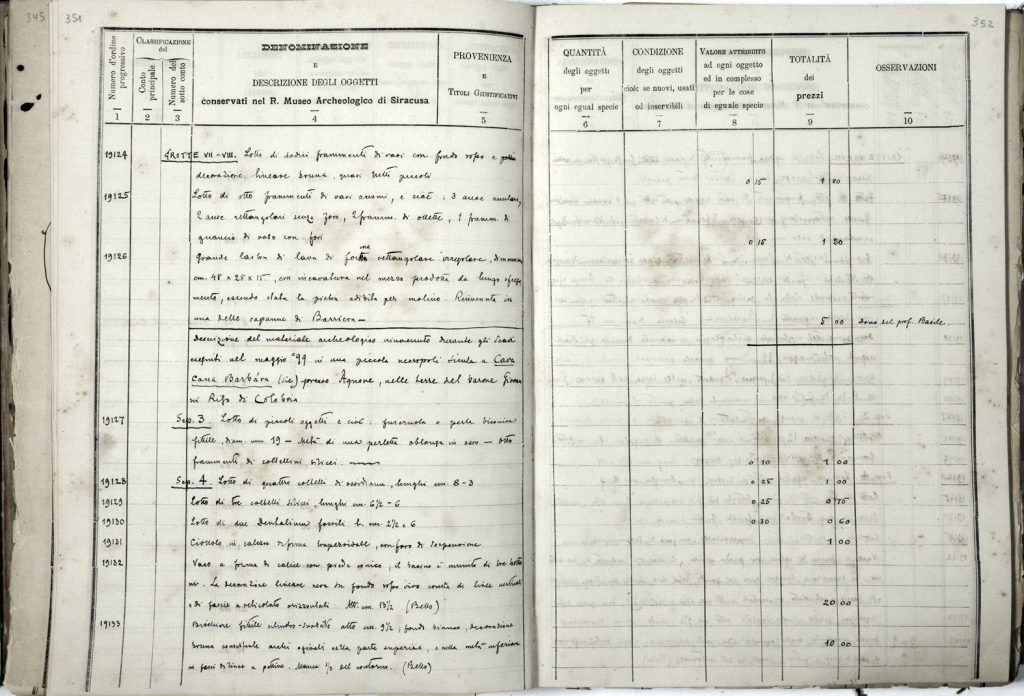 345 351
352
Numero d'ordine progressivo
CLASSIFICAZIONE del
Conto principale
Numero del sotto conto
DENOMINAZIONE
E
DESCRIZIONE DEGLI OGGETTI
conservati nel R. Museo Archeologico di Siracusa
PROVENIENZA
E
TITOLI GIUSTIFICATIVI
QUANTITÀ
degli oggetti
per
ogni egual specie
CONDIZIONE
degli oggetti
cioè: se nuovi, usati
od inservibili
VALORE ATTRIBUITO
ad ogni oggetto
ed in complesso
per le cose
di eguale specie
TOTALITÀ
dei
prezzi
OSSERVAZIONI
1 2 3 4 5 6 7 8 9 10
19124 GROTTE VII-VIII. Lotto di dodici frammenti di vasi con fondo rosso e
decorazione lineare bruna, quasi tutti piccoli 0 15 1 80
19125 Lotto di otto frammenti di vasi acromi, e cioè: 3 anse anulari,
2 anse rettangolari senza foro, 2 framm. di ollette, 1 framm. di
guancia di vaso con fori 0 15 1 20
19126 Grande lastra di lava di forma rettangolare irregolare, dimensioni
cm. 48 x 28 x 15, con incavatura nel mezzo prodotta da lungo sfrega
mento, essendo stata la pietra adibita per molino. Rinvenuta in
una delle capanne di Barriera— 5 00 Dono del prof. Basile
Descrizione del materiale archeologico rinvenuto durante gli scavi
eseguiti nel maggio '99 in una piccola necropoli sicula a Cava
Cana Barbàra (sic) presso Agnone, nelle terre del barone
di Colobria
19127 Sep. 3. Lotto di piccoli oggetti e cioè: fuseruola o perla biconica
fittile, diam. mm 19 — Metà di una perletta oblunga in osso — Otto
frammenti di coltellini silicei. 0 10 1 00
19128 Sep. 4. Lotto di quattro coltelli di ossidiana, lunghi cm. 8-3 0 25 1 00
19129 Lotto di tre coltelli silicei, lunghi cm. 6½-6 0 25 0 75
19130 Lotto di due Dentalium fossili l. cm. 2½ e 6 0 30 0 60
19131 Ciottolo in calcare di forma trapezoidale, con foro di sospensione 1 00
19132 Vaso a forma di calice con piede conico, il bacino è munito di tre
. La decorazione lineare nera su fondo rosso vivo consta di linee verticali
e di fascie a reticolato orizzontali. Alt. cm. 13½ (Bello) 20 00
19133 Bicchiere fittile cilindro-ovale alto cm. 9½; fondo bianco, decorazione
bruna archi ogivali nella parte superiore, e nella metà inferiore
in fasci di linee a pettine. Manca ⅓ del contorno. (Bello) 10 00